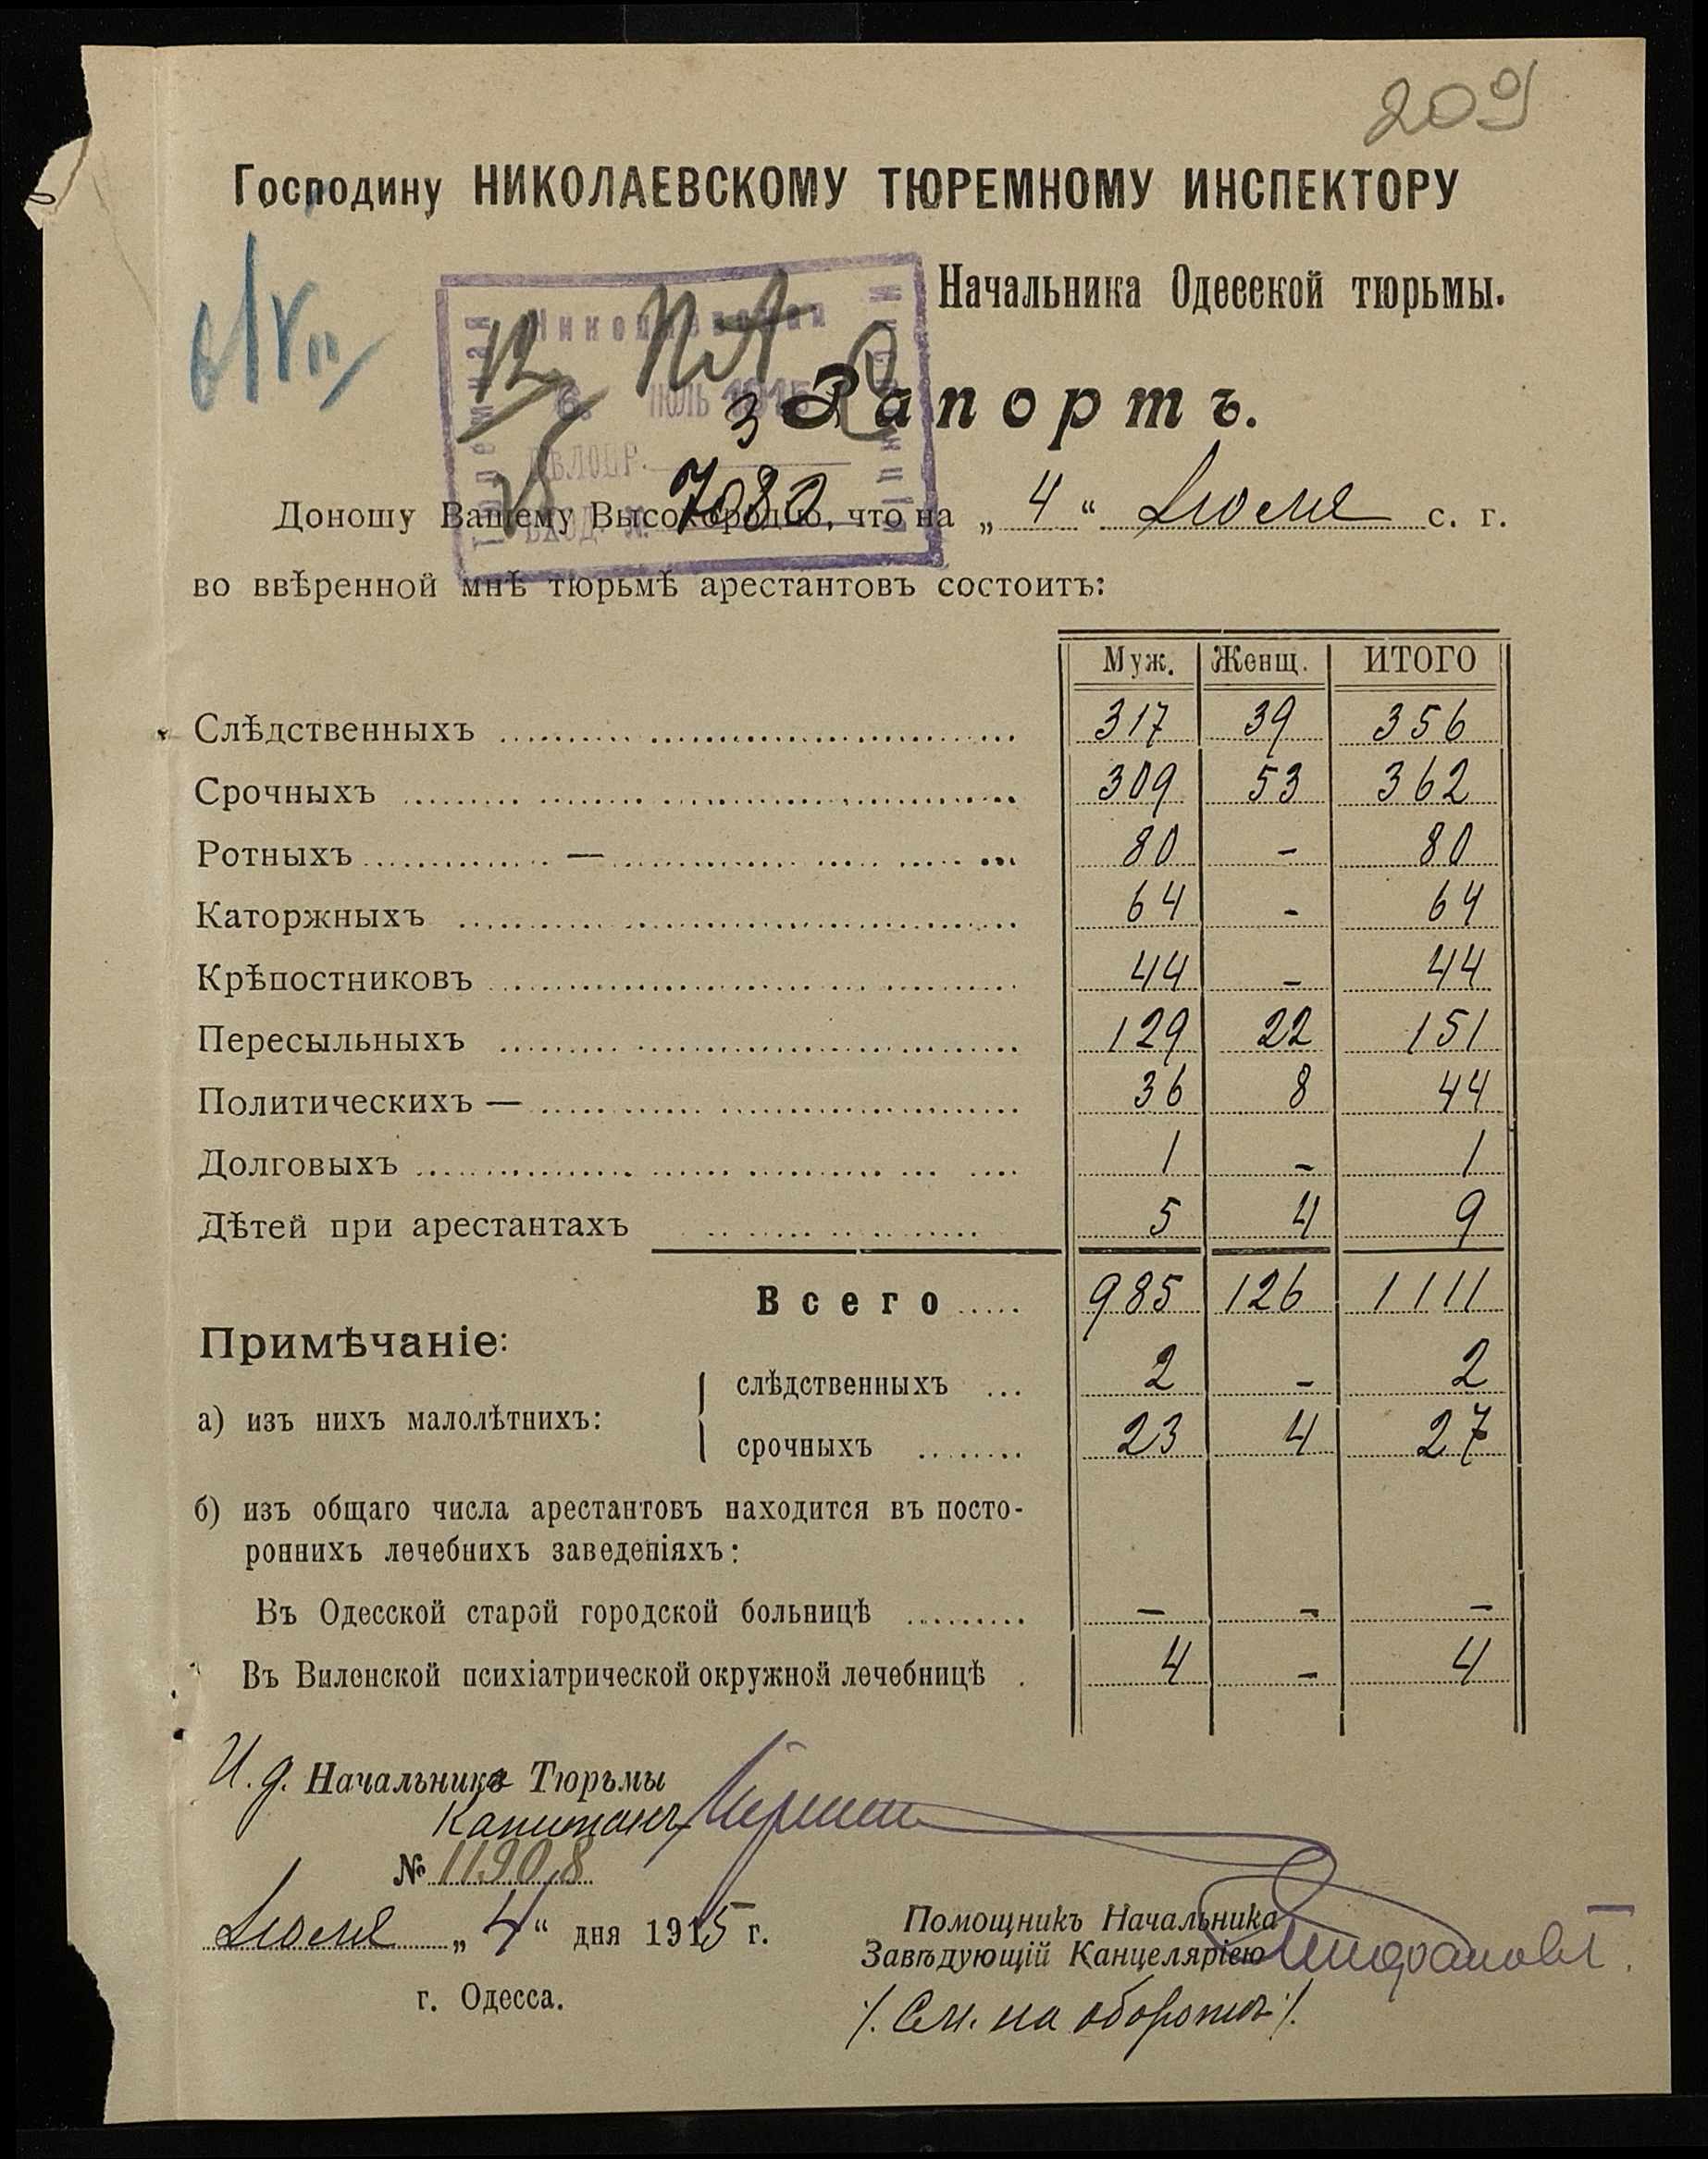 209
Господину НИКОЛАЕВСКОМУ ТЮРЕМНОМУ ИНСПЕКТОРУ
Начальника Одесской тюрьмы.
6/VII
Николаевская
Тюремная
Инспекция
6. ІЮЛЬ 1915
ДѢЛОПР. 3
ВХОД. №. 7080
Рапортъ.
Доношу Вашему Высокородію, что на „ 4 “ Іюля с. г.
во ввѣренной мнѣ тюрьмѣ арестантовъ состоитъ:
Муж. Женщ. ИТОГО
Слѣдственныхъ 317 39 356
Срочныхъ 309 53 362
Ротныхъ — 80 - 80
Каторжныхъ 64 - 64
Крѣпостниковъ 44 - 44
Пересыльныхъ 129 22 151
Политическихъ — 36 8 44
Долговыхъ 1 - 1
Дѣтей при арестантахъ 5 4 9
Всего 985 126 1111
Примѣчаніе:
а) изъ нихъ малолѣтнихъ:
слѣдственныхъ 2 - 2
срочныхъ 23 4 27
б) изъ общаго числа арестантовъ находится въ посто-
роннихъ лечебнихъ заведеніяхъ:
Въ Одесской старой городской больницѣ - - -
Въ Виленской психіатрической окружной лечебницѣ 4 - 4
И. д. Начальника Тюрьмы
Капитанъ
№ 11908
Іюля „ 4 “ дня 1915 г.
г. Одесса.
Помощникъ Начальника
Завѣдующій Канцеляріею
/. См. на оборотѣ /.